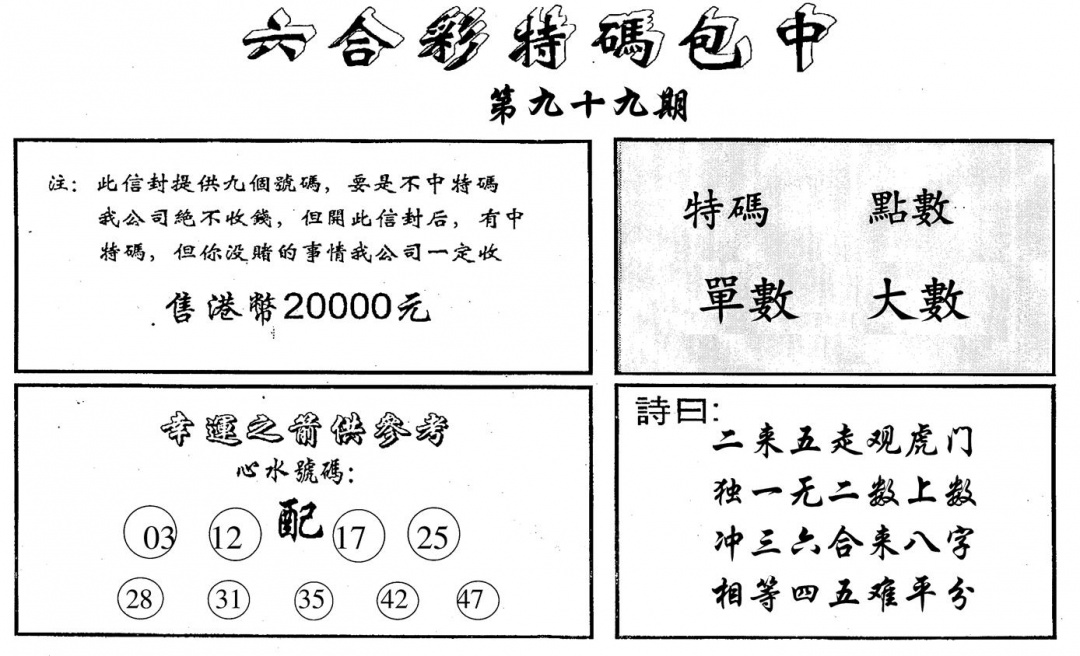 六合彩特碼包中
第九十九期
注：此信封提供九個號碼，要是不中特碼
我公司絶不收錢，但開此信封后，有中
特碼，但你没賭的事情我公司一定收
售港幣20000元
特碼 點數
單數 大數
幸運之箭供參考
心水號碼：
配
03 12 17 25
28 31 35 42 47
詩曰：
二来五走观虎门
独一无二数上数
冲三六合来八字
相等四五难平分